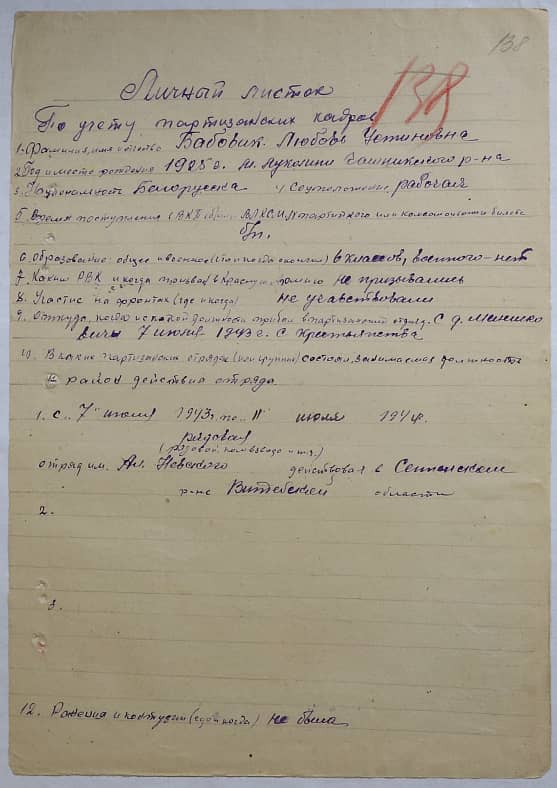 138
138
Личный листок
По учету партизанских кадров
1. Фамилия, имя отчество Бабович Любовь Устиновна
2. Год и место рождения 1925 г. м. Лукомли Чашникского р-на
3. Национальность Белорусска 4 Соцположение рабочая
5. Время поступления ВКП(б), ВЛКСМ, № партийного или комсомольского билета
б/п.
6. Образование общее и военное 6 классов, военного - нет
7. Каким РВК и когда призван в Красную армию не призывались
8. Участие на фронтах (где и когда) не участвовали
9. Откуда, когда и с какой должности прибыл в партизанский отряд. С д.
7 июня 1943 г. с крестьянства
В каких партизанских отрядах (или группах) состоял, занимаемая должность
и район действия отряда.
1. с „7" июня 1943 г. по „11" июля 1944 г.
рядовая
(рядовой, комвзвода и т.д.)
отряд им. Ал. Невского действовал в Сенненском
р-не Витебской области
2.
3.
12. Ранения и контузии (где и когда) не была